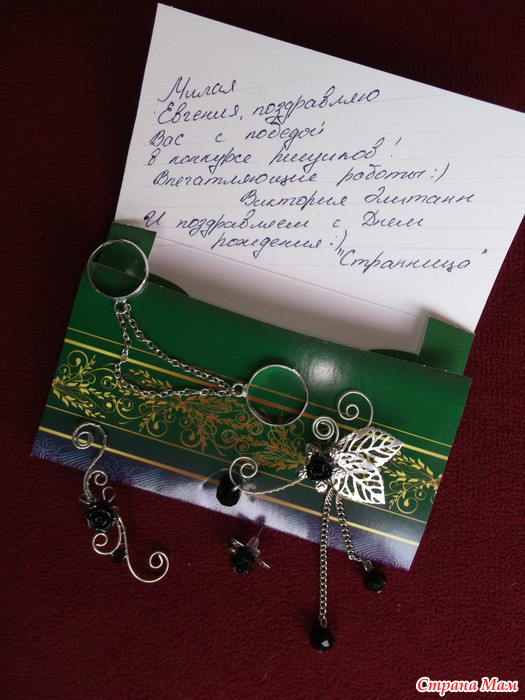 Милая
Евгения, поздравляю
Вас с победой
в конкурсе рисунков!
Впечатляющие работы:)
Виктория
И поздравляем с Днем
рождения:)
"Странница"
Страна Мам